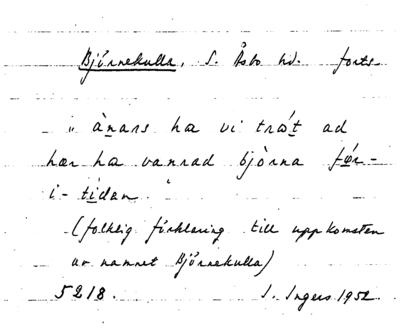 Björnekulla, S. Åsbo hd. forts.
"ànars ha vi tråt ad
hær ha vannad bjòrna fǿr-
i-tidan."
(folklig förklaring till uppkomsten
av namnet Björnekulla)
5218. I. Ingers 1952